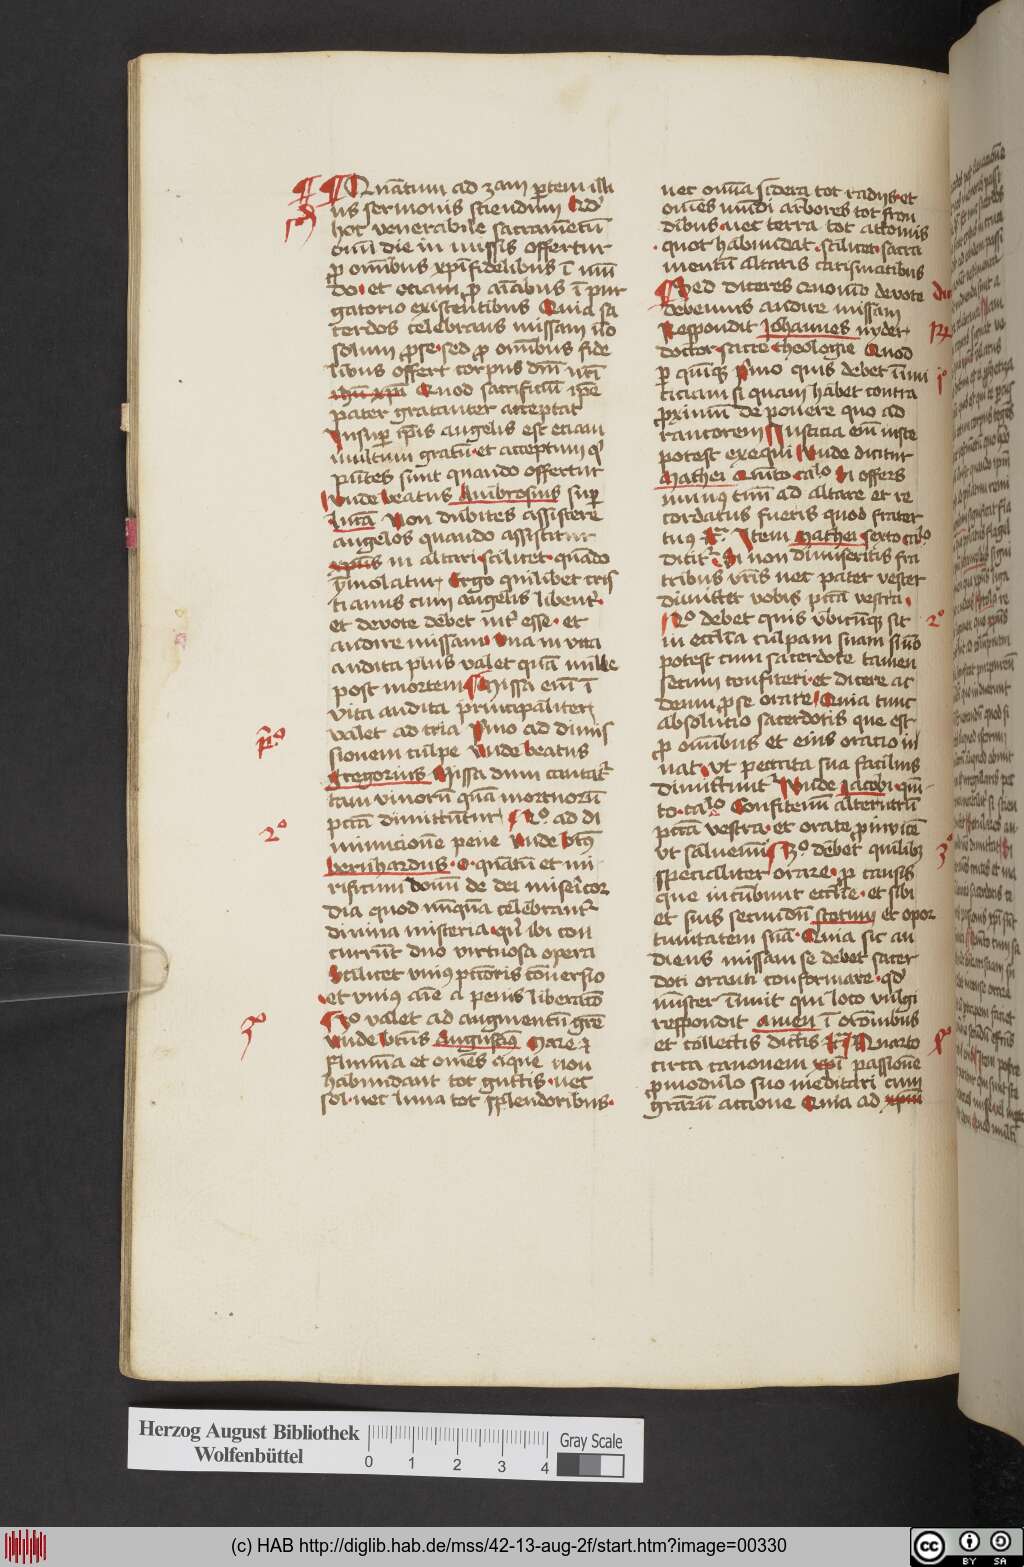 Quātum ad 3am ꝑtem illi
us sermonis sciendum Qd
hoc venerabile sacramētū
omī die in missis offertur
ꝓ oībus xp̄ifidelibus ī mū
do et eciam ꝓ aīabus ī pur
gatorio existentibus Quia sa
cerdos celebrans missam nō
solum ꝓ se sed ꝓ oībus fide
libus offert corpus dn̄i nr̄i
ihū xp̄i Quod sacrificiū ip̄e
pater gratanter acceptat
Insuꝑ ip̄is angelis est eciam
multum gratū et acceptum qꝛ
p̄ntes sunt quando offertur
Unde beatus Ambrosius suꝑ
lucā Non dubites assistere
angelos quando assistitur
xp̄us in altari scilicet quādo
ymolatur Ergo quilibet cris
tianus cum angelis libent̄
et devote debet int̄esse et
audire missam Una in vita
audita plus valet quā mille
post mortem Missa em̄ ī
vita audita principaliter
valet ad tria Primo ad dimis
pͦ
sionem culpe Unde beatus
Gregorius Missa dum cantat̄
tam vivorū quā mortuorū
pctā dimittūtur 2º ad di
2º
minucionē pene Unde btūs
bernhardus O quātū et mi
rificum donū de dei misericor
dia quod nūquā celebrant̄
divina misteria qn̄ ibi con
currūt duo virtuosa opera
Scilicet unius pctōris conversio
et unius aīe a penis liberatō
3º valet ad augmentū grē
3º
Unde btūs Augustinus Mare et
flumīa et om̄es aque non
habundant tot guttis nec
sol nec luna tot splendoribus
nec om̄ia sidera tot radiis et
om̄es mūdi arbores tot fron
dibus nec terra tot attomis
quot habundat scilicet sacra
mentū altaris carismatibus
Sed diceres Quomō devote
debemus audire missam
Respondit Johannes nyder
doctor sacre theologie Quod
ꝑ quīqꝫ Primo quis debet inimi
1º
ticiam si quam habet contra
ꝓximū deponere quo ad
rancorem Iusticia em̄ iuste
potest exequi Unde dicitur
Mathei Quīto caꝉo Si offers
munus tuū ad altare et re
cordatus fueris quod frater
tuus etc̄ Item Mathei sexto caꝉo
dicit̄ Si non dimiseritis fra
tribus vr̄is nec pater vester
dimittet vobis pctā vestra
2º debet quis ubicūqꝫ sit
2º
in ecclīa culpam suam si nō
potest cum sacerdote tamen
secum confiteri et dicere ac
demū ꝓ se orate Quia tunc
absolutio sacerdotis que est
ꝓ oībus et eius oratio iu
vat ut peccata sua facilius
dimittunt̄ Unde Jacobi quī
to caꝉo Confitemī alterutrū
pctā vestra et orate ꝓ invicē
ut salvemī 3º debet quilibꝫ
3º
specialiter orare ꝓ causis
que incūbunt ecclīe et sibi
et suis secundū statum et opor
tunitatem suā Quia sic au
diens missam se debet sacer
doti oranti conformare qd
mīster innuit qui loco vulgi
respondit Amen ī orōnibus
et collectis dictis etc̄ Quarto
circa canonem xp̄i passionē
ꝓ modulo suo meditari cum
gr̄arū accione Quia ad xp̄m
Herzog August Bibliothek
Wolfenbüttel
0 1 2 3 4
Gray Scale
(c) HAB http://diglib.hab.de/mss/42-13-aug-2f/start.htm?image=00330
cc BY SA